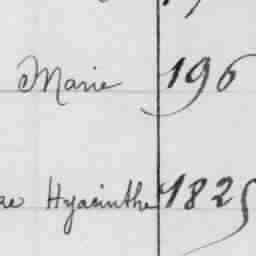 Marie 196
Hyacinthe 1825